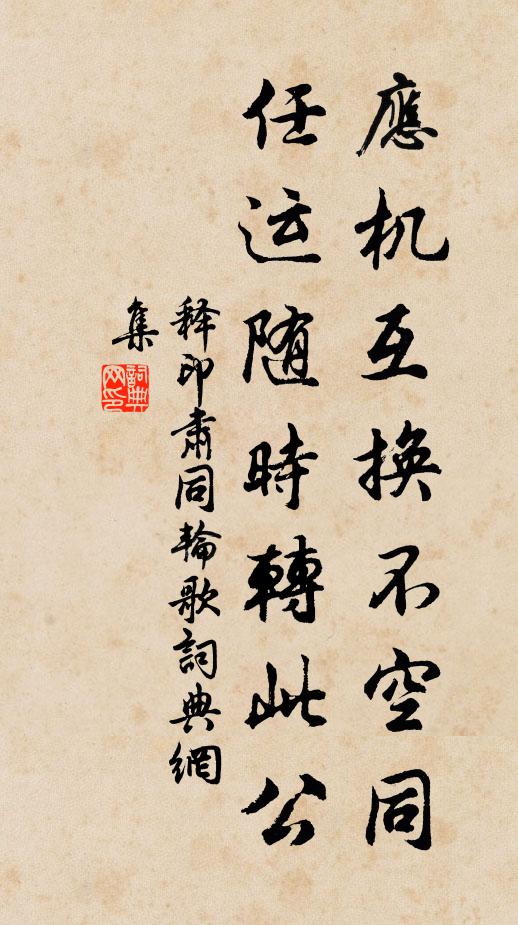 應机互換不空同
任运随時轉此公
释印肅同輪歌詞典網
集
詞典网印